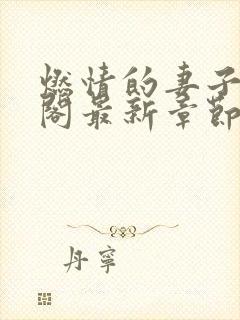 燃情的妻子
阁最新章節
丹寧